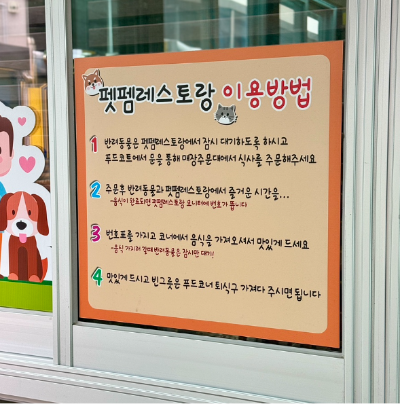 펫펨레스토랑 이용방법
1 반려동물은 펫펨레스토랑에서 잠시 대기하도록 하시고
푸드코트에서 문을 통해 매장주문대에서 식사를 주문해주세요
2 주문후 반려동물과 펫펨레스토랑에서 즐거운 시간을...
-음식이 완료되면 펫펨레스토랑 모니터에 번호가 뜹니다
3 번호표를 가지고 코너에서 음식을 가져오셔서 맛있게 드세요
-음식 가지러 갈때 반려동물은 잠시만 대기!
4 맛있게 드시고 빈그릇은 푸드코너 퇴식구 가져다 주시면 됩니다